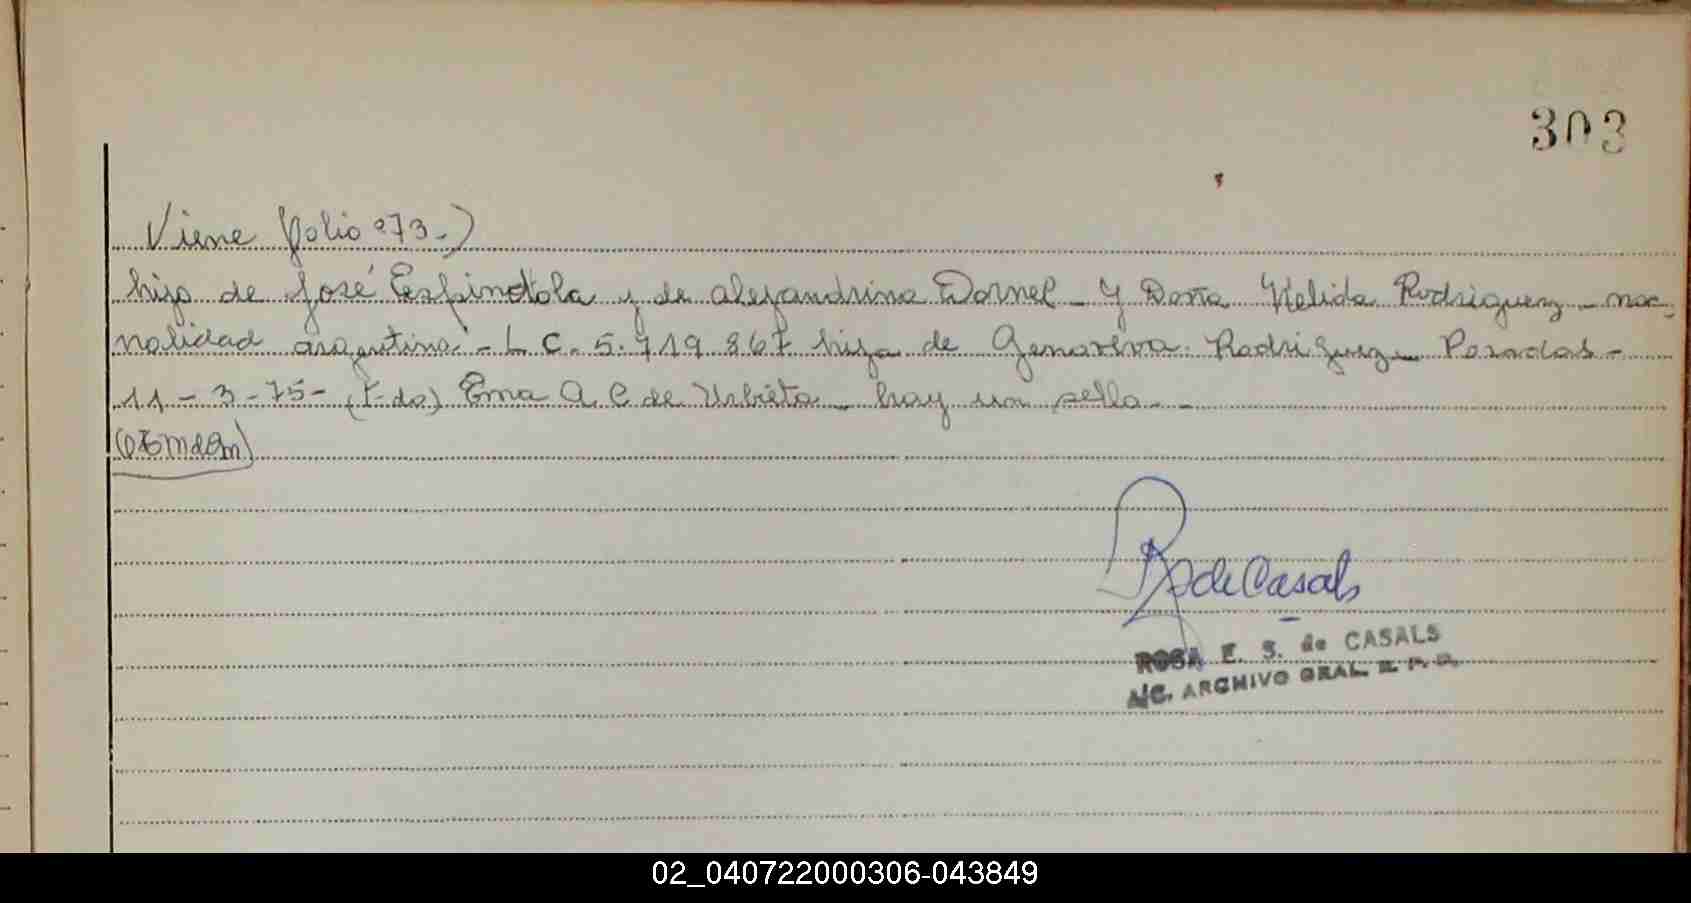 303
Viene folio 273.)
hijo de José Espindola y de Alejandrina Dornel - y Doña Nelida Rodriguez - nacio-
nalidad argentina - L C. 5.719.867 hija de Genoveva Rodriguez - Posadas -
11 - 3 - 75 - (F-do) Ema A. C de Urbieta - hay un sello - -
R S de Casals
ROSA E. S. de CASALS
A/C. ARCHIVO GRAL. R. P. P.
02_040722000306-043849